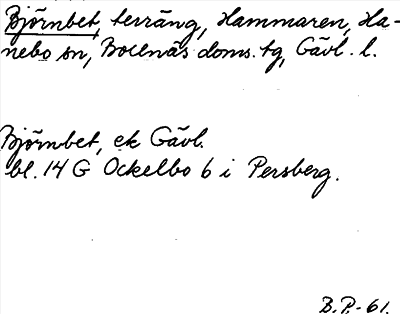 Björnbet, terräng, Hammaren, Ha-
nebo sn, Bollnäs doms. tg, Gävl. l.
Björnbet, ek Gävl.
bl. 14 G Ockelbo 6 i Persberg.
B.P.-61.